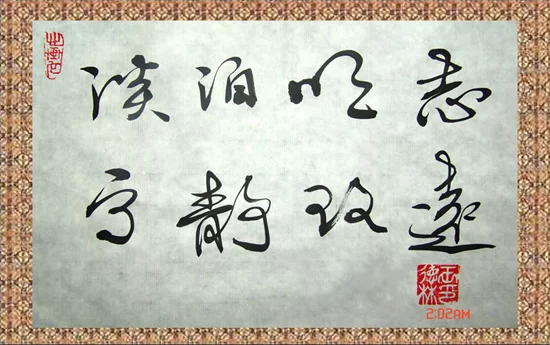 淡泊明志
宁静致遠
2:02AM